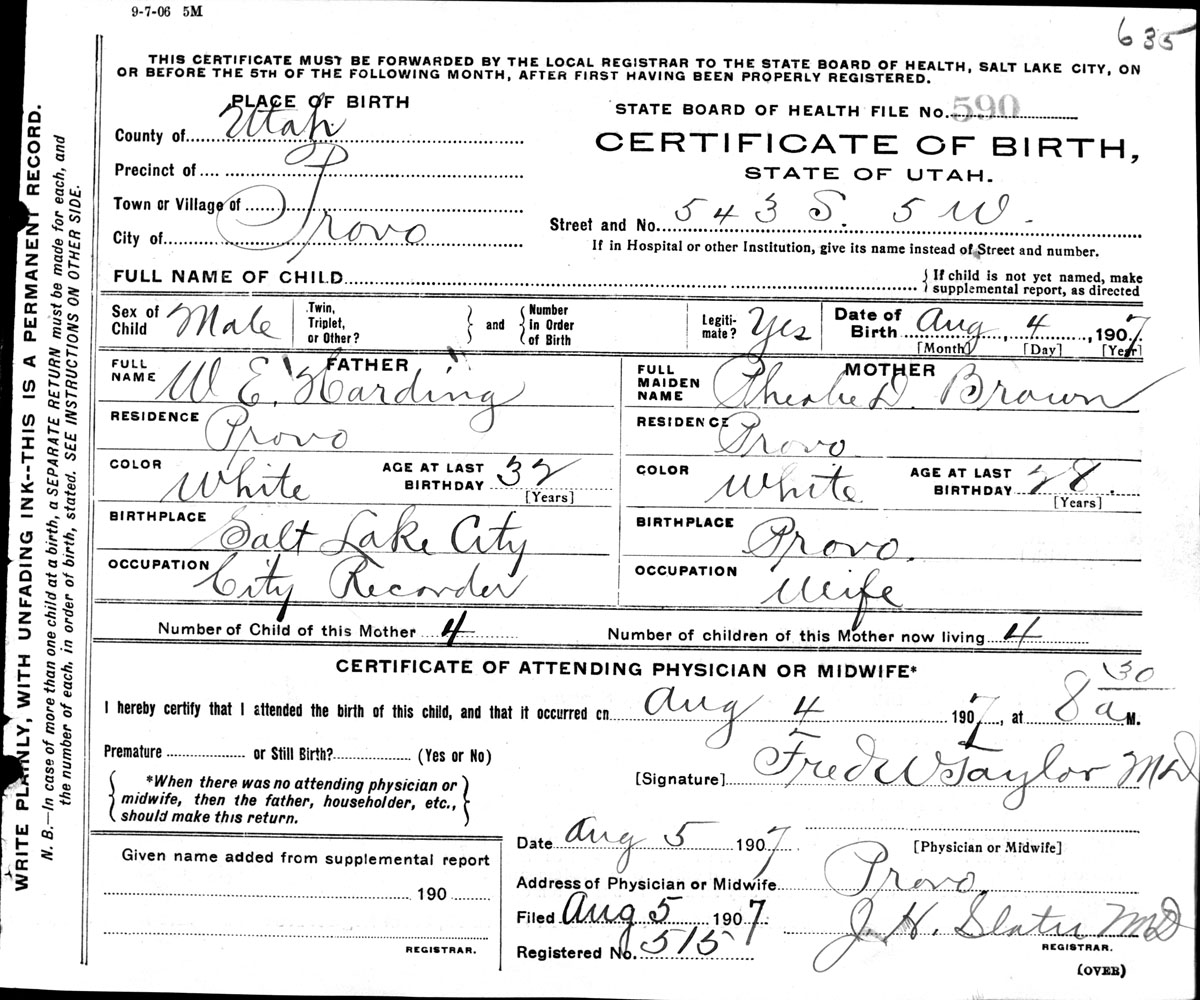 9-7-06 5M
635
THIS CERTIFICATE MUST BE FORWARDED BY THE LOCAL REGISTRAR TO THE STATE BOARD OF HEALTH, SALT LAKE CITY, ON
OR BEFORE THE 5TH OF THE FOLLOWING MONTH, AFTER FIRST HAVING BEEN PROPERLY REGISTERED.
WRITE PLAINLY, WITH UNFADING INK--THIS IS A PERMANENT RECORD.
N. B.—In case of more than one child at a birth, a SEPARATE RETURN must be made for each, and
the number of each, in order of birth, stated. SEE INSTRUCTIONS ON OTHER SIDE.
PLACE OF BIRTH
County of Utah
Precinct of
Town or Village of
City of Provo
STATE BOARD OF HEALTH FILE No. 590
CERTIFICATE OF BIRTH,
STATE OF UTAH.
Street and No. 543 S. 5 W.
If in Hospital or other Institution, give its name instead of Street and number.
FULL NAME OF CHILD
If child is not yet named, make
supplemental report, as directed
Sex of Child Male
Twin, Triplet, or Other?
and
Number in Order of Birth
Legiti- mate? Yes
Date of Birth Aug 4, 1907
[Month] [Day] [Year]
FATHER
FULL NAME W. E. Harding
RESIDENCE Provo
COLOR White
AGE AT LAST BIRTHDAY 32
[Years]
BIRTHPLACE Salt Lake City
OCCUPATION City Recorder
MOTHER
FULL MAIDEN NAME Pheobe D. Brown
RESIDENCE Provo
COLOR White
AGE AT LAST BIRTHDAY 28.
[Years]
BIRTHPLACE Provo.
OCCUPATION Wife
Number of Child of this Mother 4
Number of children of this Mother now living 4
CERTIFICATE OF ATTENDING PHYSICIAN OR MIDWIFE*
I hereby certify that I attended the birth of this child, and that it occurred on Aug 4 1907, at 8 30 a M.
Premature or Still Birth? (Yes or No)
*When there was no attending physician or
midwife, then the father, householder, etc.,
should make this return.
[Signature] Fred W Taylor MD
[Physician or Midwife]
Date Aug 5 1907
Address of Physician or Midwife Provo
Given name added from supplemental report
190
REGISTRAR.
Filed Aug 5 1907
Registered No. 515
J. H. Slater MD
REGISTRAR.
(OVER)